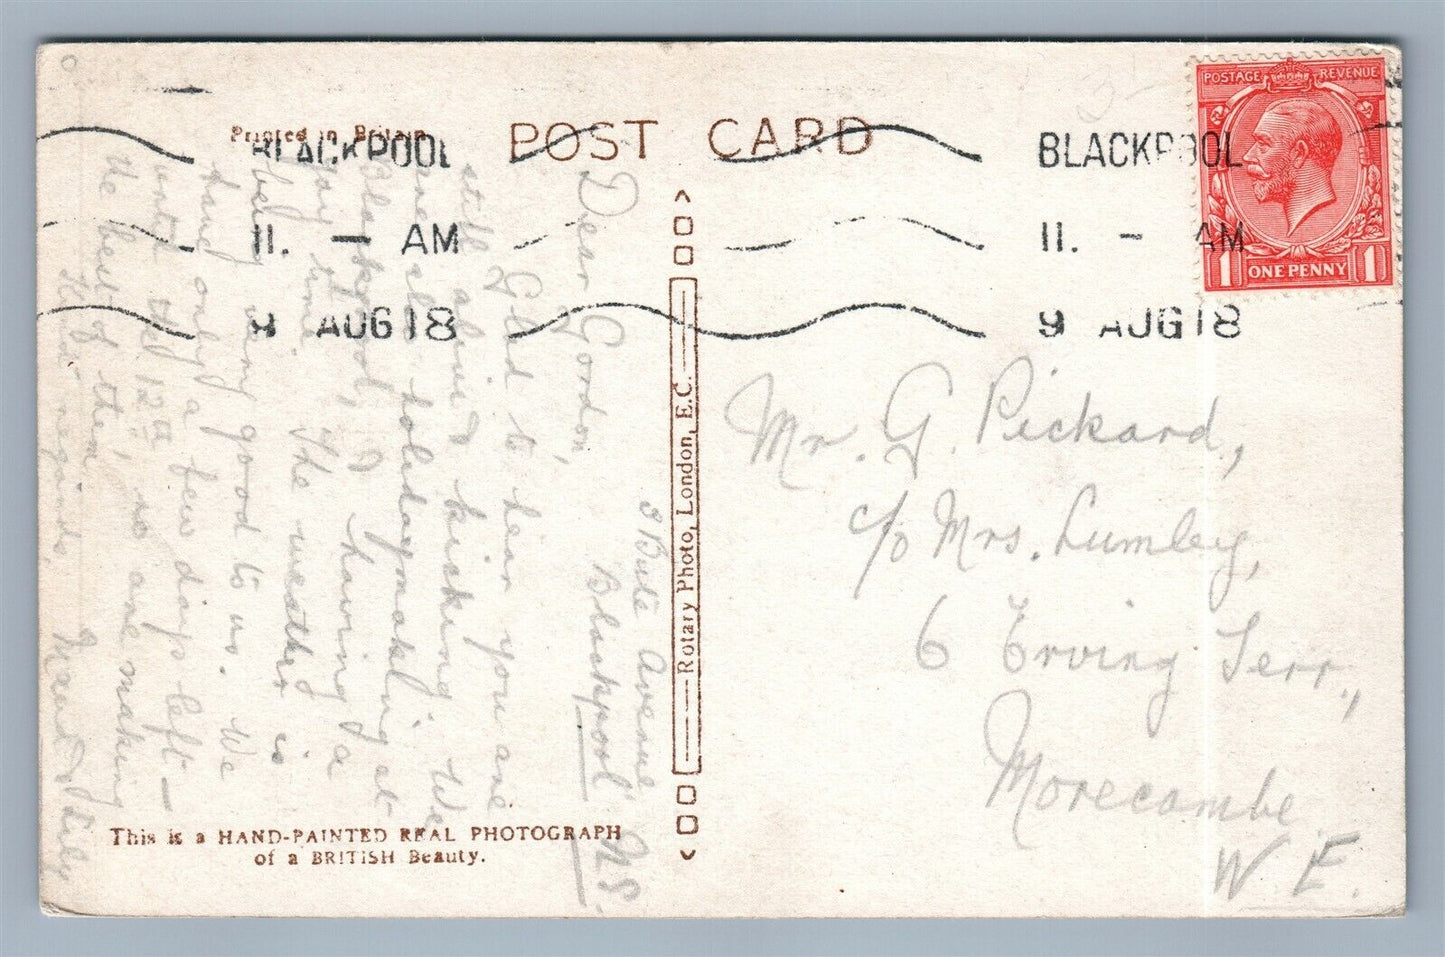 Printed in Britain
POST CARD
BLACKPOOL
11. - AM
9 AUG 18
BLACKPOOL
11. - AM
9 AUG 18
POSTAGE REVENUE
1 ONE PENNY 1
3 Bute Avenue
Blackpool N.S.
Dear Gordon,
Glad to hear you are
still alive & kicking. We
are also holidaymaking at
Blackpool, & having a
good time. The weather is
being very good to us. We
have only a few days left —
until the 12th, so are making
the best of them.
Kind regards,
Maud & Lily
Rotary Photo, London, E.C.
This is a HAND-PAINTED REAL PHOTOGRAPH
of a BRITISH Beauty.
Mr. G. Pickard,
c/o Mrs. Lumley,
6 Erving Terr.,
Morecambe
W. E.